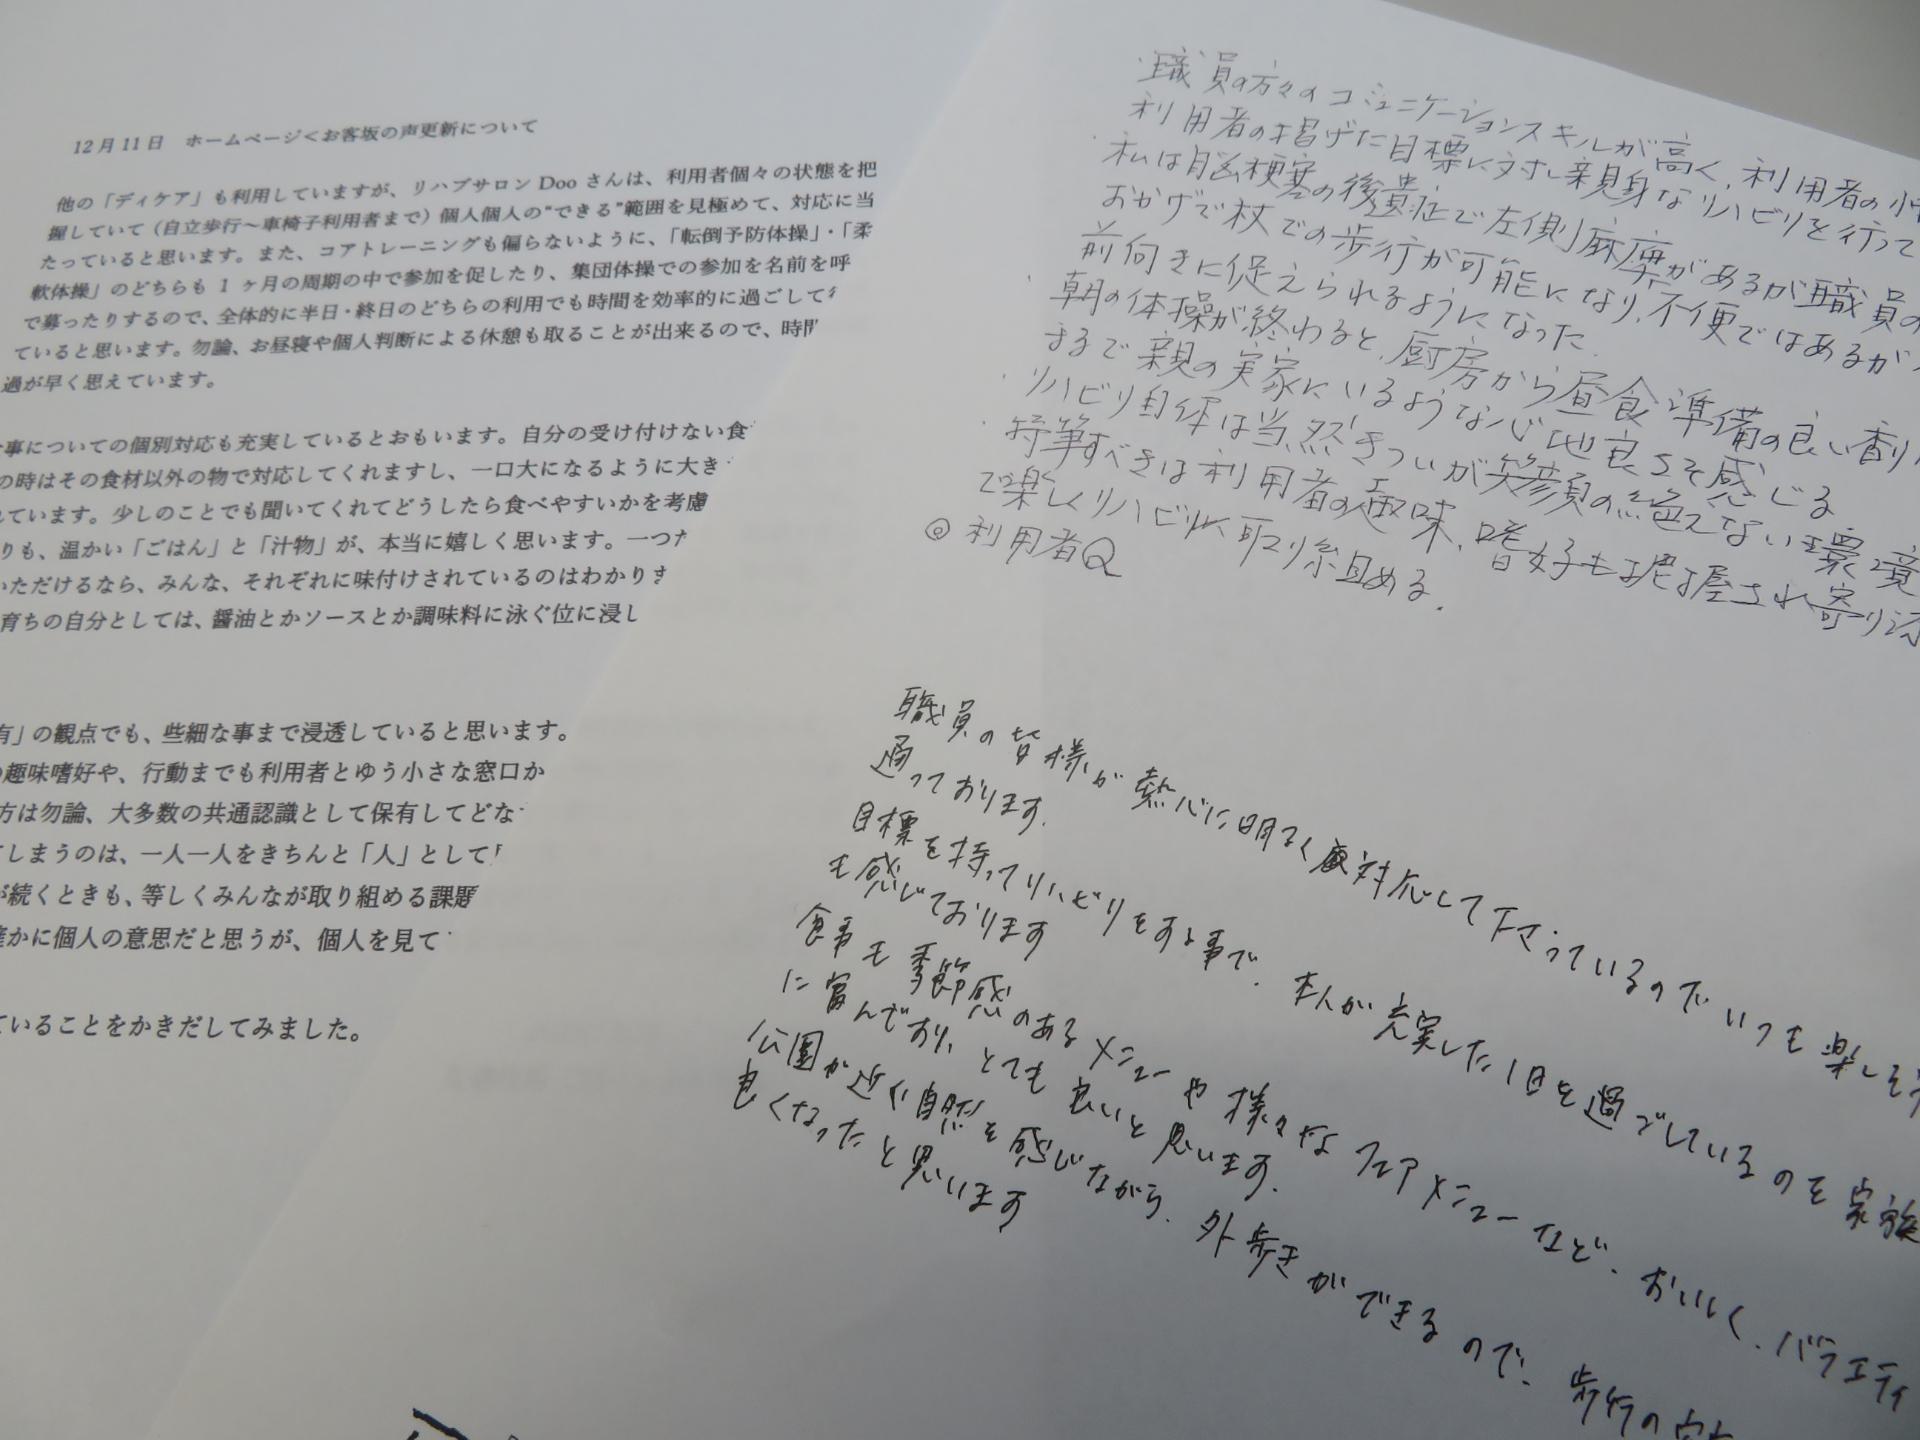 12月11日　ホームページ<お客坂の声更新について
他の「ディケア」も利用していますが、リハブサロン Doo さんは、利用者個々の状態を把
握していて（自立歩行～車椅子利用者まで）個人個人の“できる”範囲を見極めて、対応に当
たっていると思います。また、コアトレーニングも偏らないように、「転倒予防体操」・「柔
軟体操」のどちらも 1 ヶ月の周期の中で参加を促したり、集団体操での参加を名前を呼
で募ったりするので、全体的に半日・終日のどちらの利用でも時間を効率的に過ごして
ていると思います。勿論、お昼寝や個人判断による休憩も取ることが出来るので、時間
過が早く思えています。
事についての個別対応も充実しているとおもいます。自分の受け付けない食
の時はその食材以外の物で対応してくれますし、一口大になるように大き
れています。少しのことでも聞いてくれてどうしたら食べやすいかを考慮
りも、温かい「ごはん」と「汁物」が、本当に嬉しく思います。一つ
いただけるなら、みんな、それぞれに味付けされているのはわかりま
育ちの自分としては、醤油とかソースとか調味料に泳ぐ位に浸し
有」の観点でも、些細な事まで浸透していると思います。
の趣味嗜好や、行動までも利用者とゆう小さな窓口か
方は勿論、大多数の共通認識として保有してどな
てしまうのは、一人一人をきちんと「人」として
が続くときも、等しくみんなが取り組める課題
確かに個人の意思だと思うが、個人を見て
ていることをかきだしてみました。
・職員の方々のコミュニケーションスキルが高く、利用者の
利用者の掲げた目標に対し親身なリハビリを行って
・私は脳梗塞の後遺症で左側麻痺があるが職員の
おかげで杖での歩行が可能になり、不便ではあるが
前向きに捉えられるようになった
・朝の体操が終わると、厨房から昼食準備の良い香り
まるで親の実家にいるような心地良さを感じる
・リハビリ自体は当然きついが笑顔の絶えない環境
・特筆すべきは利用者の趣味、嗜好も把握され寄り添
で楽しくリハビリに取り組める.
◎ 利用者Q
職員の皆様が熱心に明るく対応して下さっているのでいつも楽しそう
通っております.
目標を持ってリハビリをする事で、本人が充実した1日を過ごしているのを家族
も感じております
食事も季節感のあるメニューや様々なフェアメニューなど、おいしく、バラエティ
に富んでおり、とても良いと思います.
公園が近く自然を感じながら、外歩きができるので、歩行の
良くなったと思います